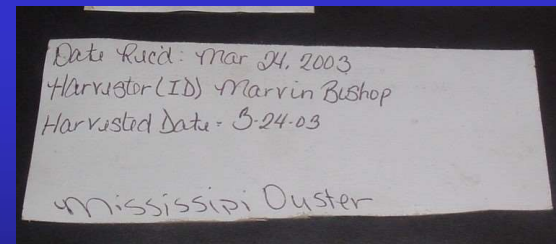 Date Rec'd: Mar 24, 2003
Harvestor (ID) Marvin Bishop
Harvested Date - 3-24-03
Mississipi Oyster